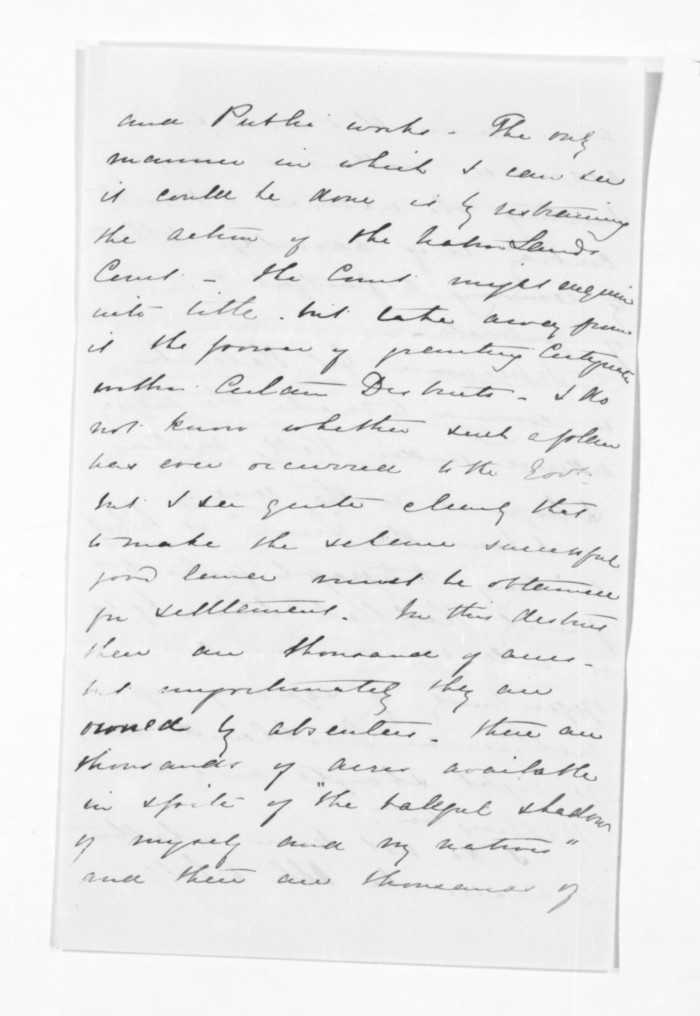 and Public works - The only
manner in which I can see
it could be done is by restraining
the action of the Native Lands
Court - the Court might enquire
into title. but take away from
it the power of granting Certificates
within Certain Districts - I do
not know whether such a plan
has ever occurred to the Govt.
but I see quite clearly that
to make the scheme successful
good land must be obtained
for settlement. In this district
there are thousand of acres -
but unfortunately they are
owned by absentees. there are
thousands of acres available
in spite of "the baleful shadow
of myself and my natives"
and there are thousands of